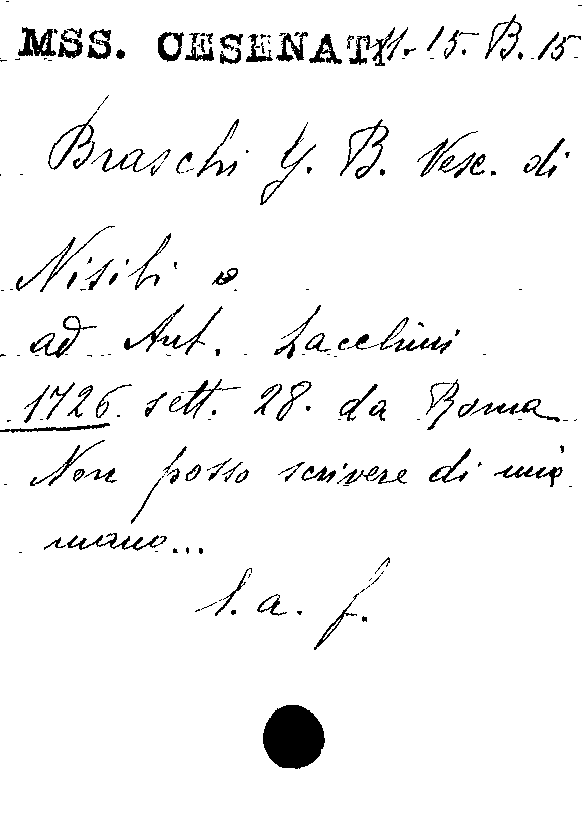 MSS. CESENATI 11. 15. B. 15
Braschi G. B. Vesc. di
Nisibi
ad Ant. Zacchini
1726 sett. 28. da Roma
Non posso scrivere di mia
mano...
l. a. f.